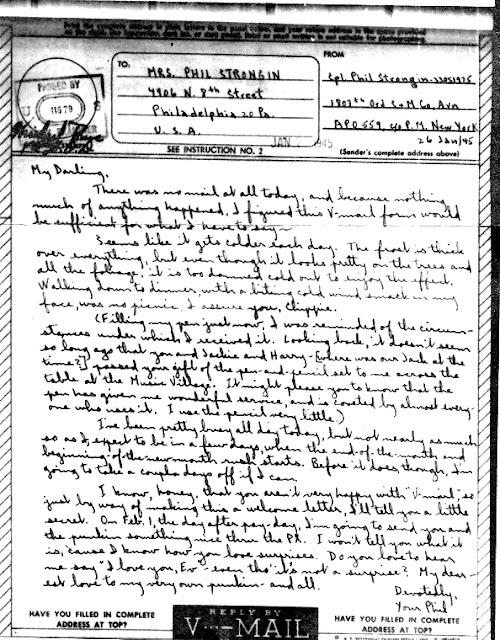 Print the complete address in plain letters in the panel below, and your return address in the space provided
TO:
MRS. PHIL STRONGIN
4906 N. 8th Street
Philadelphia 20 Pa.
U. S. A.
FROM
Cpl Phil Strongin-33051925
1807th Ord S+M Co, Avn
APO 559, c/o P.M. New York
26 Jan/45
(Sender's complete address above)
PASSED BY
JAN 1945
SEE INSTRUCTION NO. 2
My Darling,
There was no mail at all today, and because nothing
much of anything happened, I figured this V-mail form would
be sufficient for what I have to say -
Seems like it gets colder each day. The frost is thick
over everything, but even though it looks pretty on the trees and
all the foliage, it is too damned cold out to enjoy the effect.
Walking down to dinner, with a biting cold wind smack in my
face, was no picnic, I assure you, Chippie.
(Filling my pen just now, I was reminded of the circum-
stances under which I received it. Looking back, it doesn't seem
so long ago that you and Jackie and Harry - [where was our Jack at the
time?] passed your gift of the pen-and-pencil set to me across the
table at the Music Village. It might please you to know that the
pen has given me wonderful service, and is coveted by almost every-
one who uses it. I use the pencil very little.)
I've been pretty busy all day today, but not nearly as much
so as I expect to be in a few days, when the end-of-the-month and
beginning-of-the-new-month rush starts. Before it does though, I'm
going to take a coupla days off if I can.
I know, honey, that you aren't very happy with V-mail, so
just by way of making this a welcome letter, I'll tell you a little
secret. On Feb. 1, the day after pay-day, I'm going to send you and
the punkin something nice thru the PX. I won't tell you what it
is, 'cause I know how you love surprises. Do you love to hear
me say "I love you, Ev" - even tho' it's not a surprise? My dear-
est love to my very own punkin - and all.
Devotedly,
Your Phil
HAVE YOU FILLED IN COMPLETE
ADDRESS AT TOP?
REPLY BY
V···—MAIL
HAVE YOU FILLED IN COMPLETE
ADDRESS AT TOP?